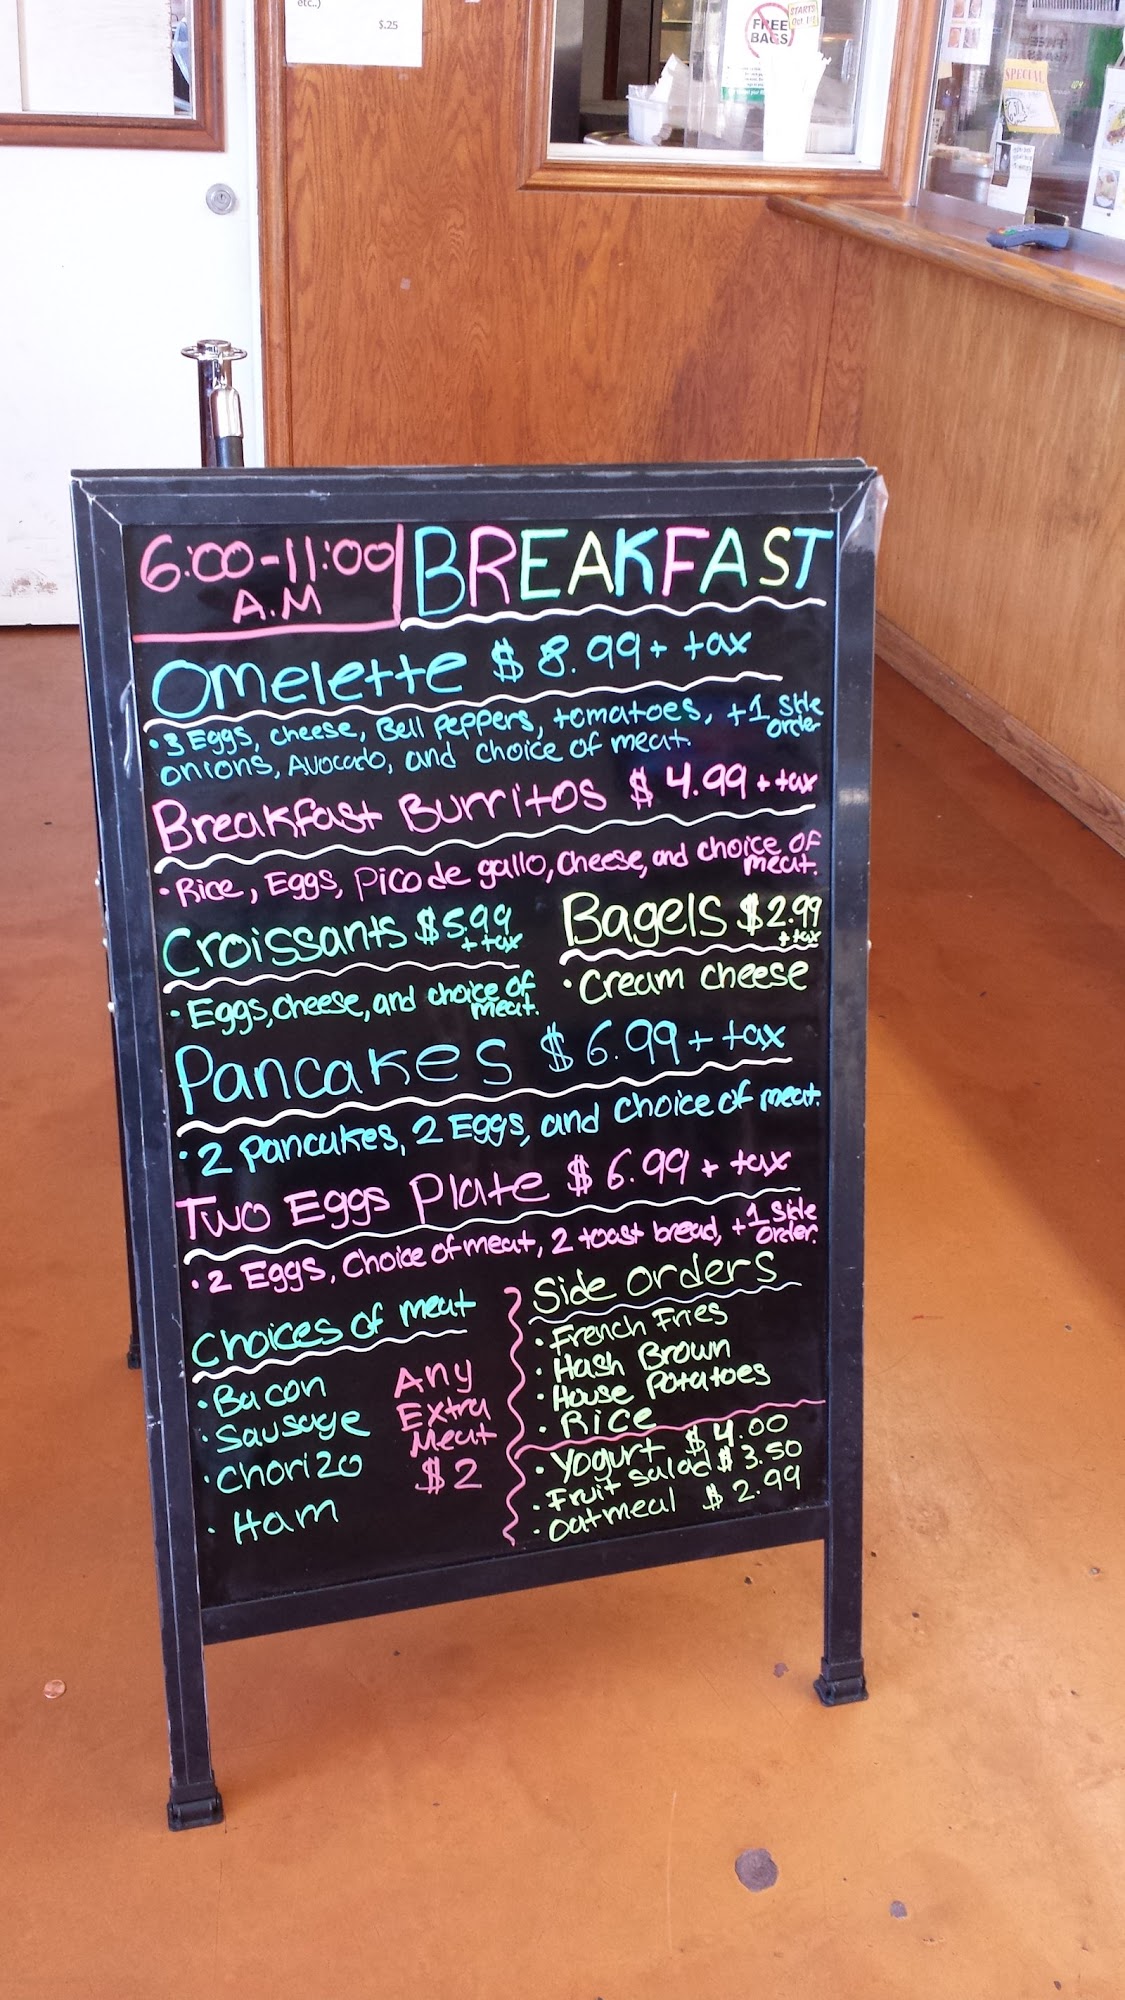 etc..)
$.25
FREE
BAGS
STARTS
Oct 1!
SPECIAL
6:00-11:00
A.M
BREAKFAST
Omelette $ 8.99 + tax
· 3 Eggs, cheese, Bell Peppers, tomatoes, +1 Side order
onions, Avocado, and choice of meat.
Breakfast Burritos $ 4.99 + tax
· Rice, Eggs, Pico de gallo, Cheese, and choice of meat.
Croissants $5.99 + tax
· Eggs, cheese, and choice of meat.
Bagels $2.99 + tax
· Cream cheese
Pancakes $ 6.99 + tax
· 2 Pancakes, 2 Eggs, and choice of meat.
Two Eggs Plate $ 6.99 + tax
· 2 Eggs, Choice of meat, 2 toast bread, +1 Side Order.
Choices of meat
· Bacon
· Sausage
· Chorizo
· Ham
Any
Extra
Meat
$2
Side orders
· French Fries
· Hash Brown
· House Potatoes
· Rice
· Yogurt $ 4.00
· Fruit salad $ 3.50
· Oatmeal $ 2.99